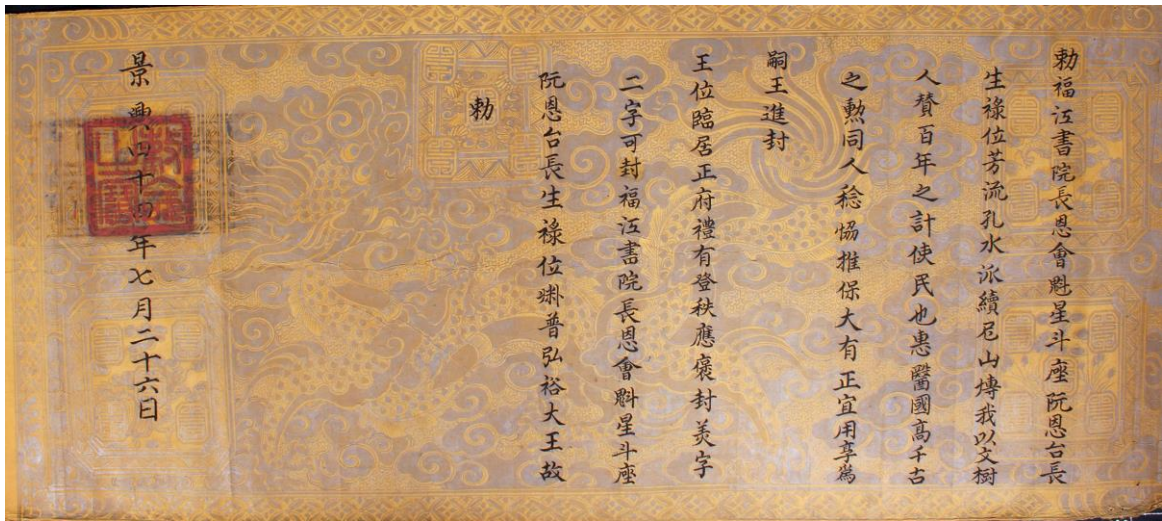 勅福江書院長恩會魁星斗座阮恩台長
生祿位芳流孔水派續尼山慱我以文樹
人賛百年之計使民也惠醫國高千古
之勲同人稔恊推保大有正宜用享爲
嗣王進封
王位臨居正府禮有登秩應褒封美字
二字可封福江書院長恩會魁星斗座
阮恩台長生祿位淵普弘裕大王故
勅
景興四十四年七月二十六日